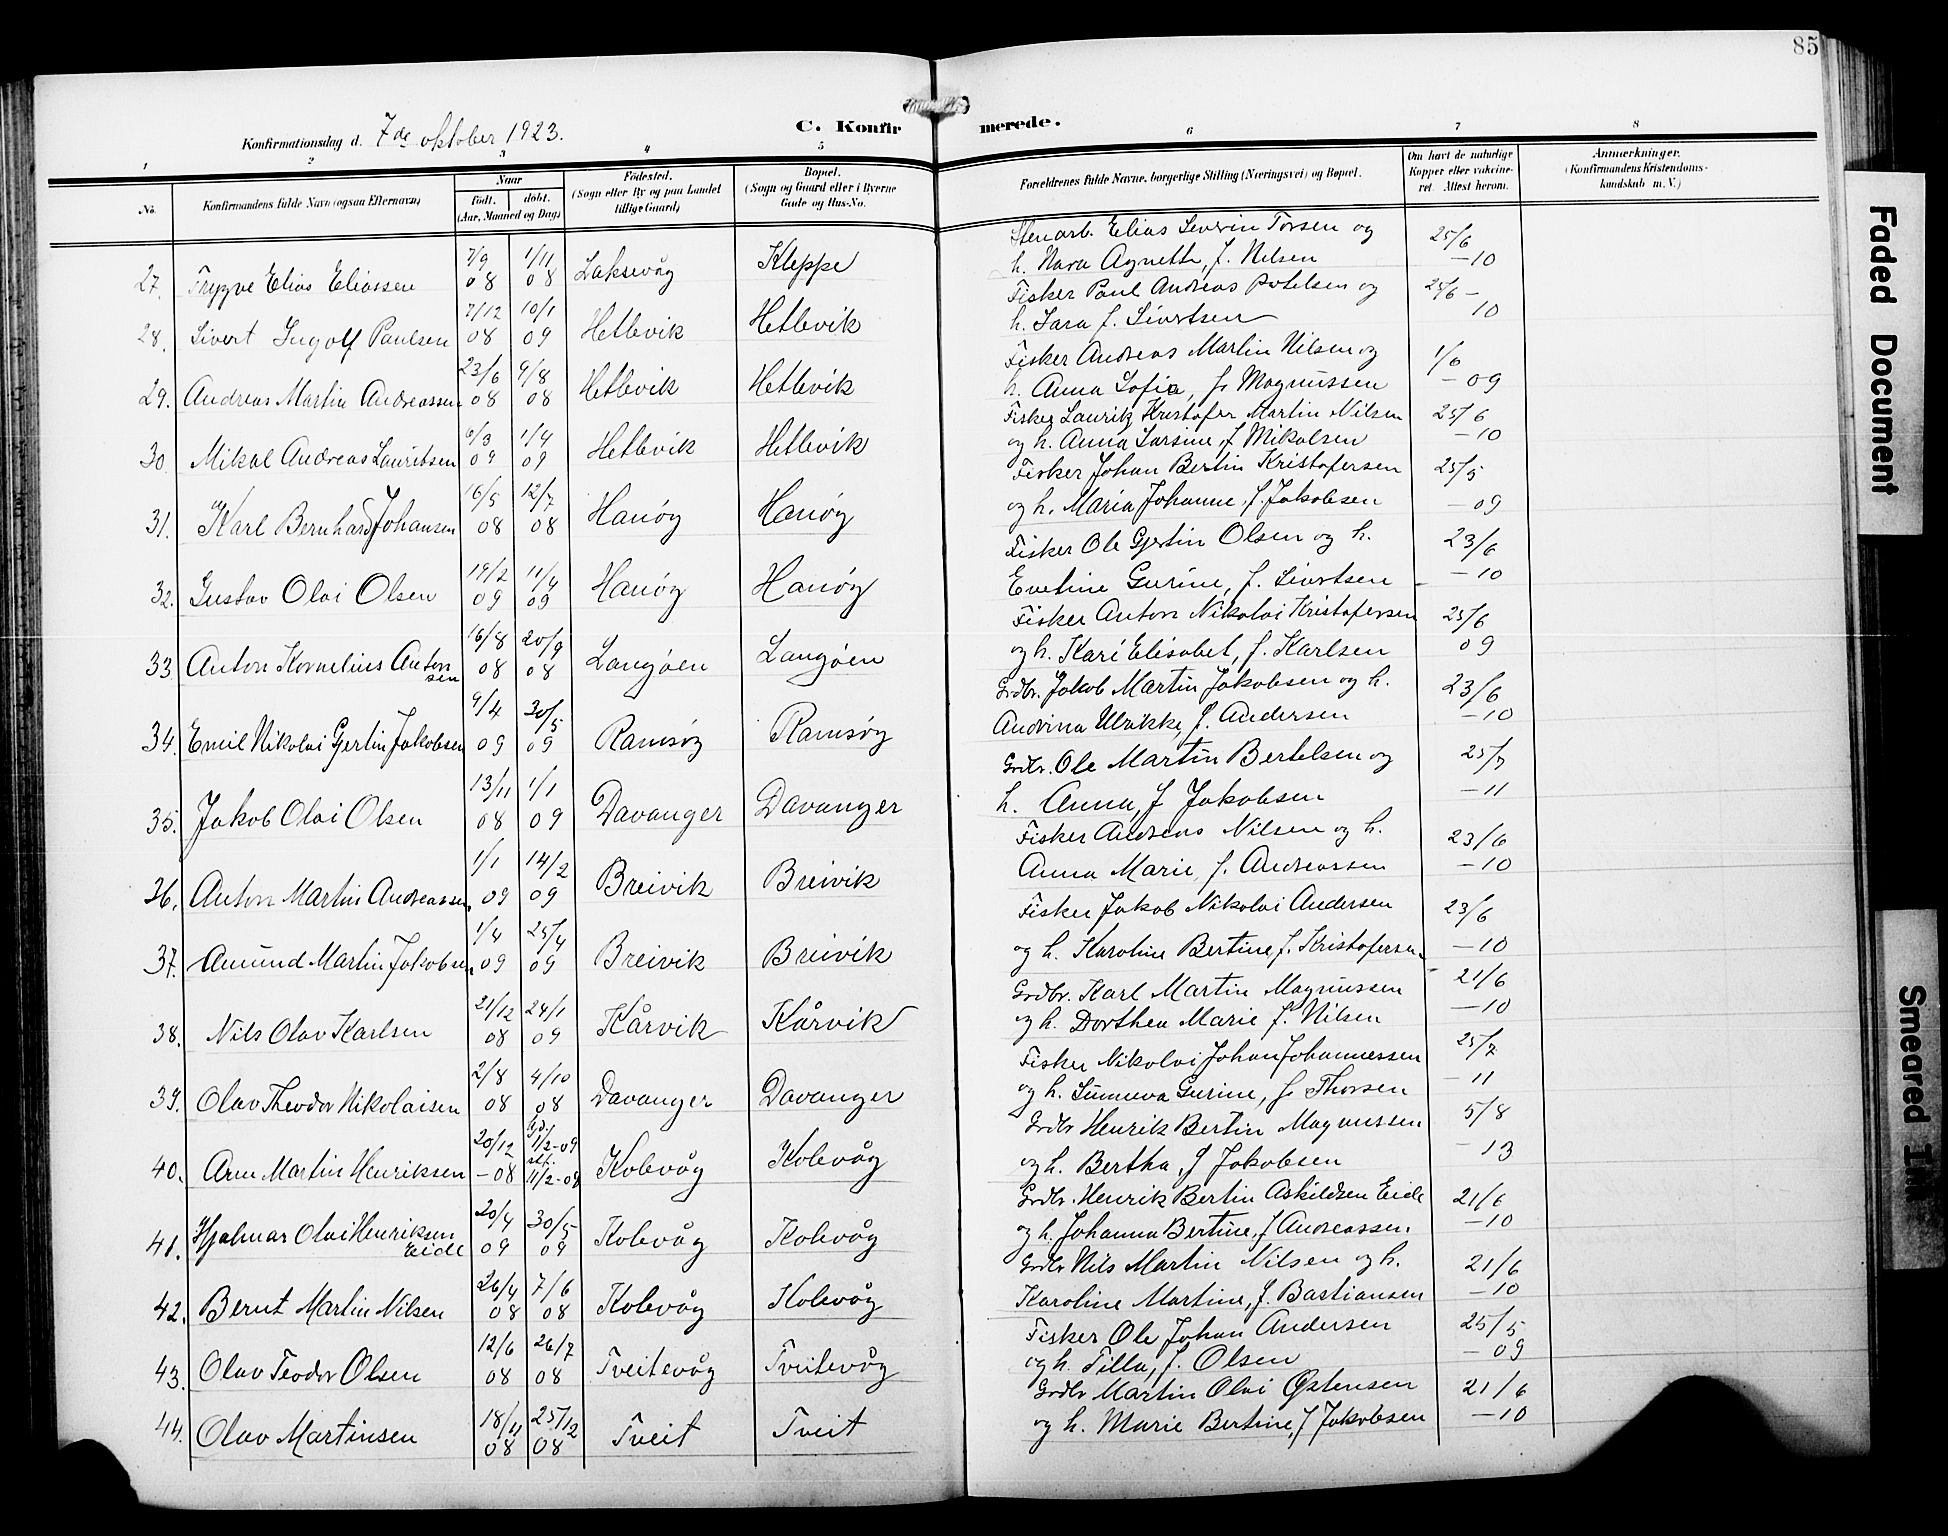 85
Konfirmationsdag d. 7de oktober 1923.
C. Konfirmerede.
1 2 3 4 5 6 7 8
No. Konfirmandens fulde Navn (ogsaa Efternavn) Naar født. døbt. (Aar, Maaned og Dag) Fødested. (Sogn eller By og paa Landet tillige Gaard) Bopæl. (Sogn og Gaard eller i Byerne Gade og Hus-No. Forældrenes fulde Navne, borgerlige Stilling (Næringsvei) og Bopæl. Om havt de naturlige Kopper eller vakcineret. Attest herom. Anmærkninger. (Konfirmandens Kristendomskundskab m. V.)
27. Trygve Elias Eliassen 7/9 08 1/11 08 Laksevåg Kleppe Stenarb. Elias Severin Torsen og h. Nara Agnethe, f. Nilsen 25/6 —10
28. Sivert Ingolf Paulsen 7/12 08 10/1 09 Hetlevik Hetlevik Fisker Paul Andreas h. Sara f. Sivertsen 25/6 — 10
29. Andreas Martin Andreassen 23/6 08 9/8 08 Hetlevik Hetlevik Fisker Andreas Martin Nilsen og h. Anna Sofia, f. Magnussen 1/6 —09
30. Mikal Andreas Lauritsen 6/3 09 1/4 09 Hetlevik Hetlevik Fisker Lauritz Kristofer Martin Nilsen og h. Anna Larsine, f. Mikalsen 25/6 —10
31. Karl Bernhard Johansen 16/5 08 12/7 08 Hanøy Hanøy Fisker Johan Bertin Kristofersen og h. Maria Johanne, f. Jakobsen 25/5 —09
32. Gustav Olai Olsen 19/2 09 11/4 09 Hanøy Hanøy Fisker Ole Gjertin Olsen og h. Eveline Gurine, f. Sivertsen 23/6 —10
33 Anton Kornelius Antonsen 16/8 08 20/9 08 Langøen Langøen Fisker Anton Nikolai Kristofersen og h. Kari Elisabet, f. Karlsen 25/6 09
34. Emil Nikolai Gjertin Jakobsen 9/4 09 30/5 09 Ramsøy Ramsøy Grdbr. Jakob Martin Jakobsen og h. Andrina Ulrikke, f. Andersen 23/6 —10
35. Jakob Olai Olsen 13/11 08 1/1 09 Davanger Davanger Grdbr. Ole Martin Bertelsen og h. Anna, f. Jakobsen 25/7 —11
36. Anton Martin Andreassen. 1/1 09 14/2 09 Breivik Breivik Fisker Andreas Nilsen og h. Anna Marie, f. Andreassen 23/6 —10
37. Amund Martin Jakobsen 1/4 09 25/4 09 Breivik Breivik Fisker Jakob Nikolai Andersen og h. Karoline Bertine, f. Kristofersen 23/6 —10
38. Nils Olav Karlsen 21/12 08 24/1 09 Kårvik Kårvik Grdbr. Karl Martin Magnussen og h. Dorthea Marie f. Nilsen 21/6 —10
39. Olav Theodor Nikolaisen 2/8 08 4/10 08 Davanger Davanger Fisker Nikolai Johan Johannessen og h. Sunneva Gurine, f. Thorsen 25/7 —11
40. Arne Martin Henriksen 20/12 —08 hjd. 1/2-09 stf. 11/2-08 Kolevåg Kolevåg Grdbr Henrik Bertin Magnussen og h. Bertha, f. Jakobsen 5/8 — 13
41. Hjalmar Olai Henriksen Eide 20/4 09 30/5 09 Kolevåg Kolevåg Grdbr. Henrik Bertin Askildsen Eide og h. Johanna Bertine, f. Andreassen. 21/6 —10
42. Bernt Martin Nilsen 26/4 08 7/6 08 Kolevåg Kolevåg Grdbr Nils Martin Nilsen og h. Karoline Martine, f. Bastiansen 21/6 —10
43. Olav Teodor Olsen 12/6 08 26/7 08 Tveitevåg Tveitevåg Fisker Ole Johan Andersen og h. Tilla, f. Olsen 25/5 —09
44. Olav Martinsen 18/11 08 25/12 08 Tveit Tveit Grdbr Martin Olai Østensen og h. Marie Bertine, f. Jakobsen 21/6 —10
Faded Document
Smeared Ink